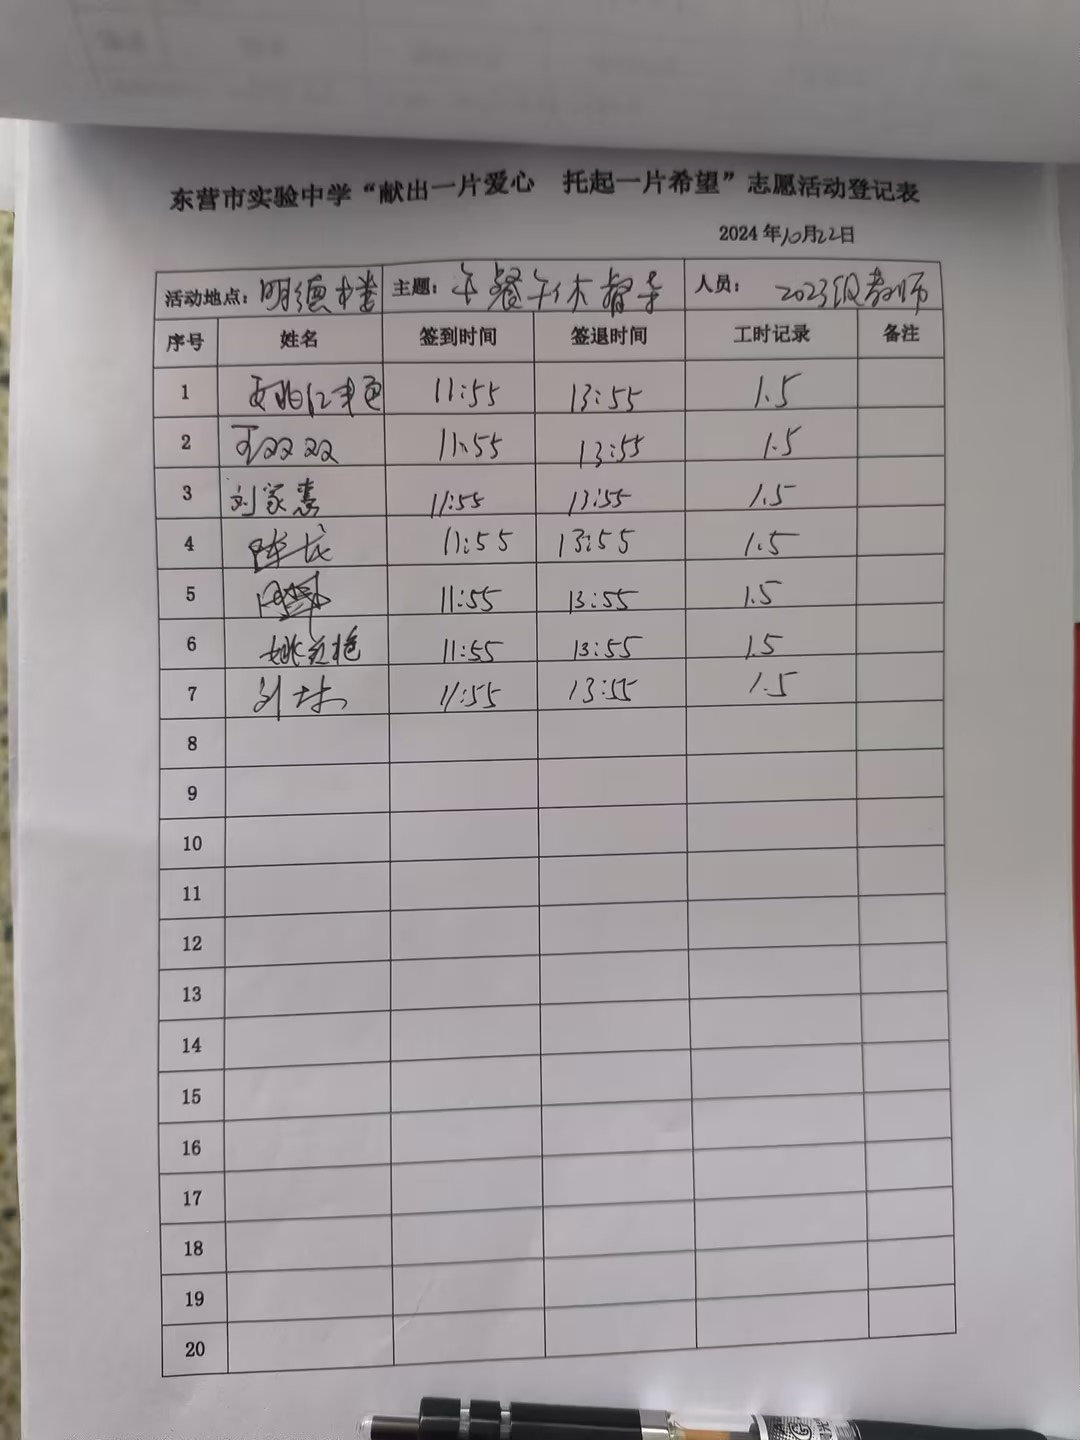 东营市实验中学“献出一片爱心 托起一片希望”志愿活动登记表
2024年10月22日
活动地点：明德楼 主题：午餐午休督导 人员：2023级教师
序号 姓名 签到时间 签退时间 工时记录 备注
1 11:55 13:55 1.5
2 王双双 11:55 13:55 1.5
3 刘家慧 11:55 13:55 1.5
4 陈龙 11:55 13:55 1.5
5 11:55 13:55 1.5
6 姚 艳 11:55 13:55 1.5
7 刘 11:55 13:55 1.5
8
9
10
11
12
13
14
15
16
17
18
19
20